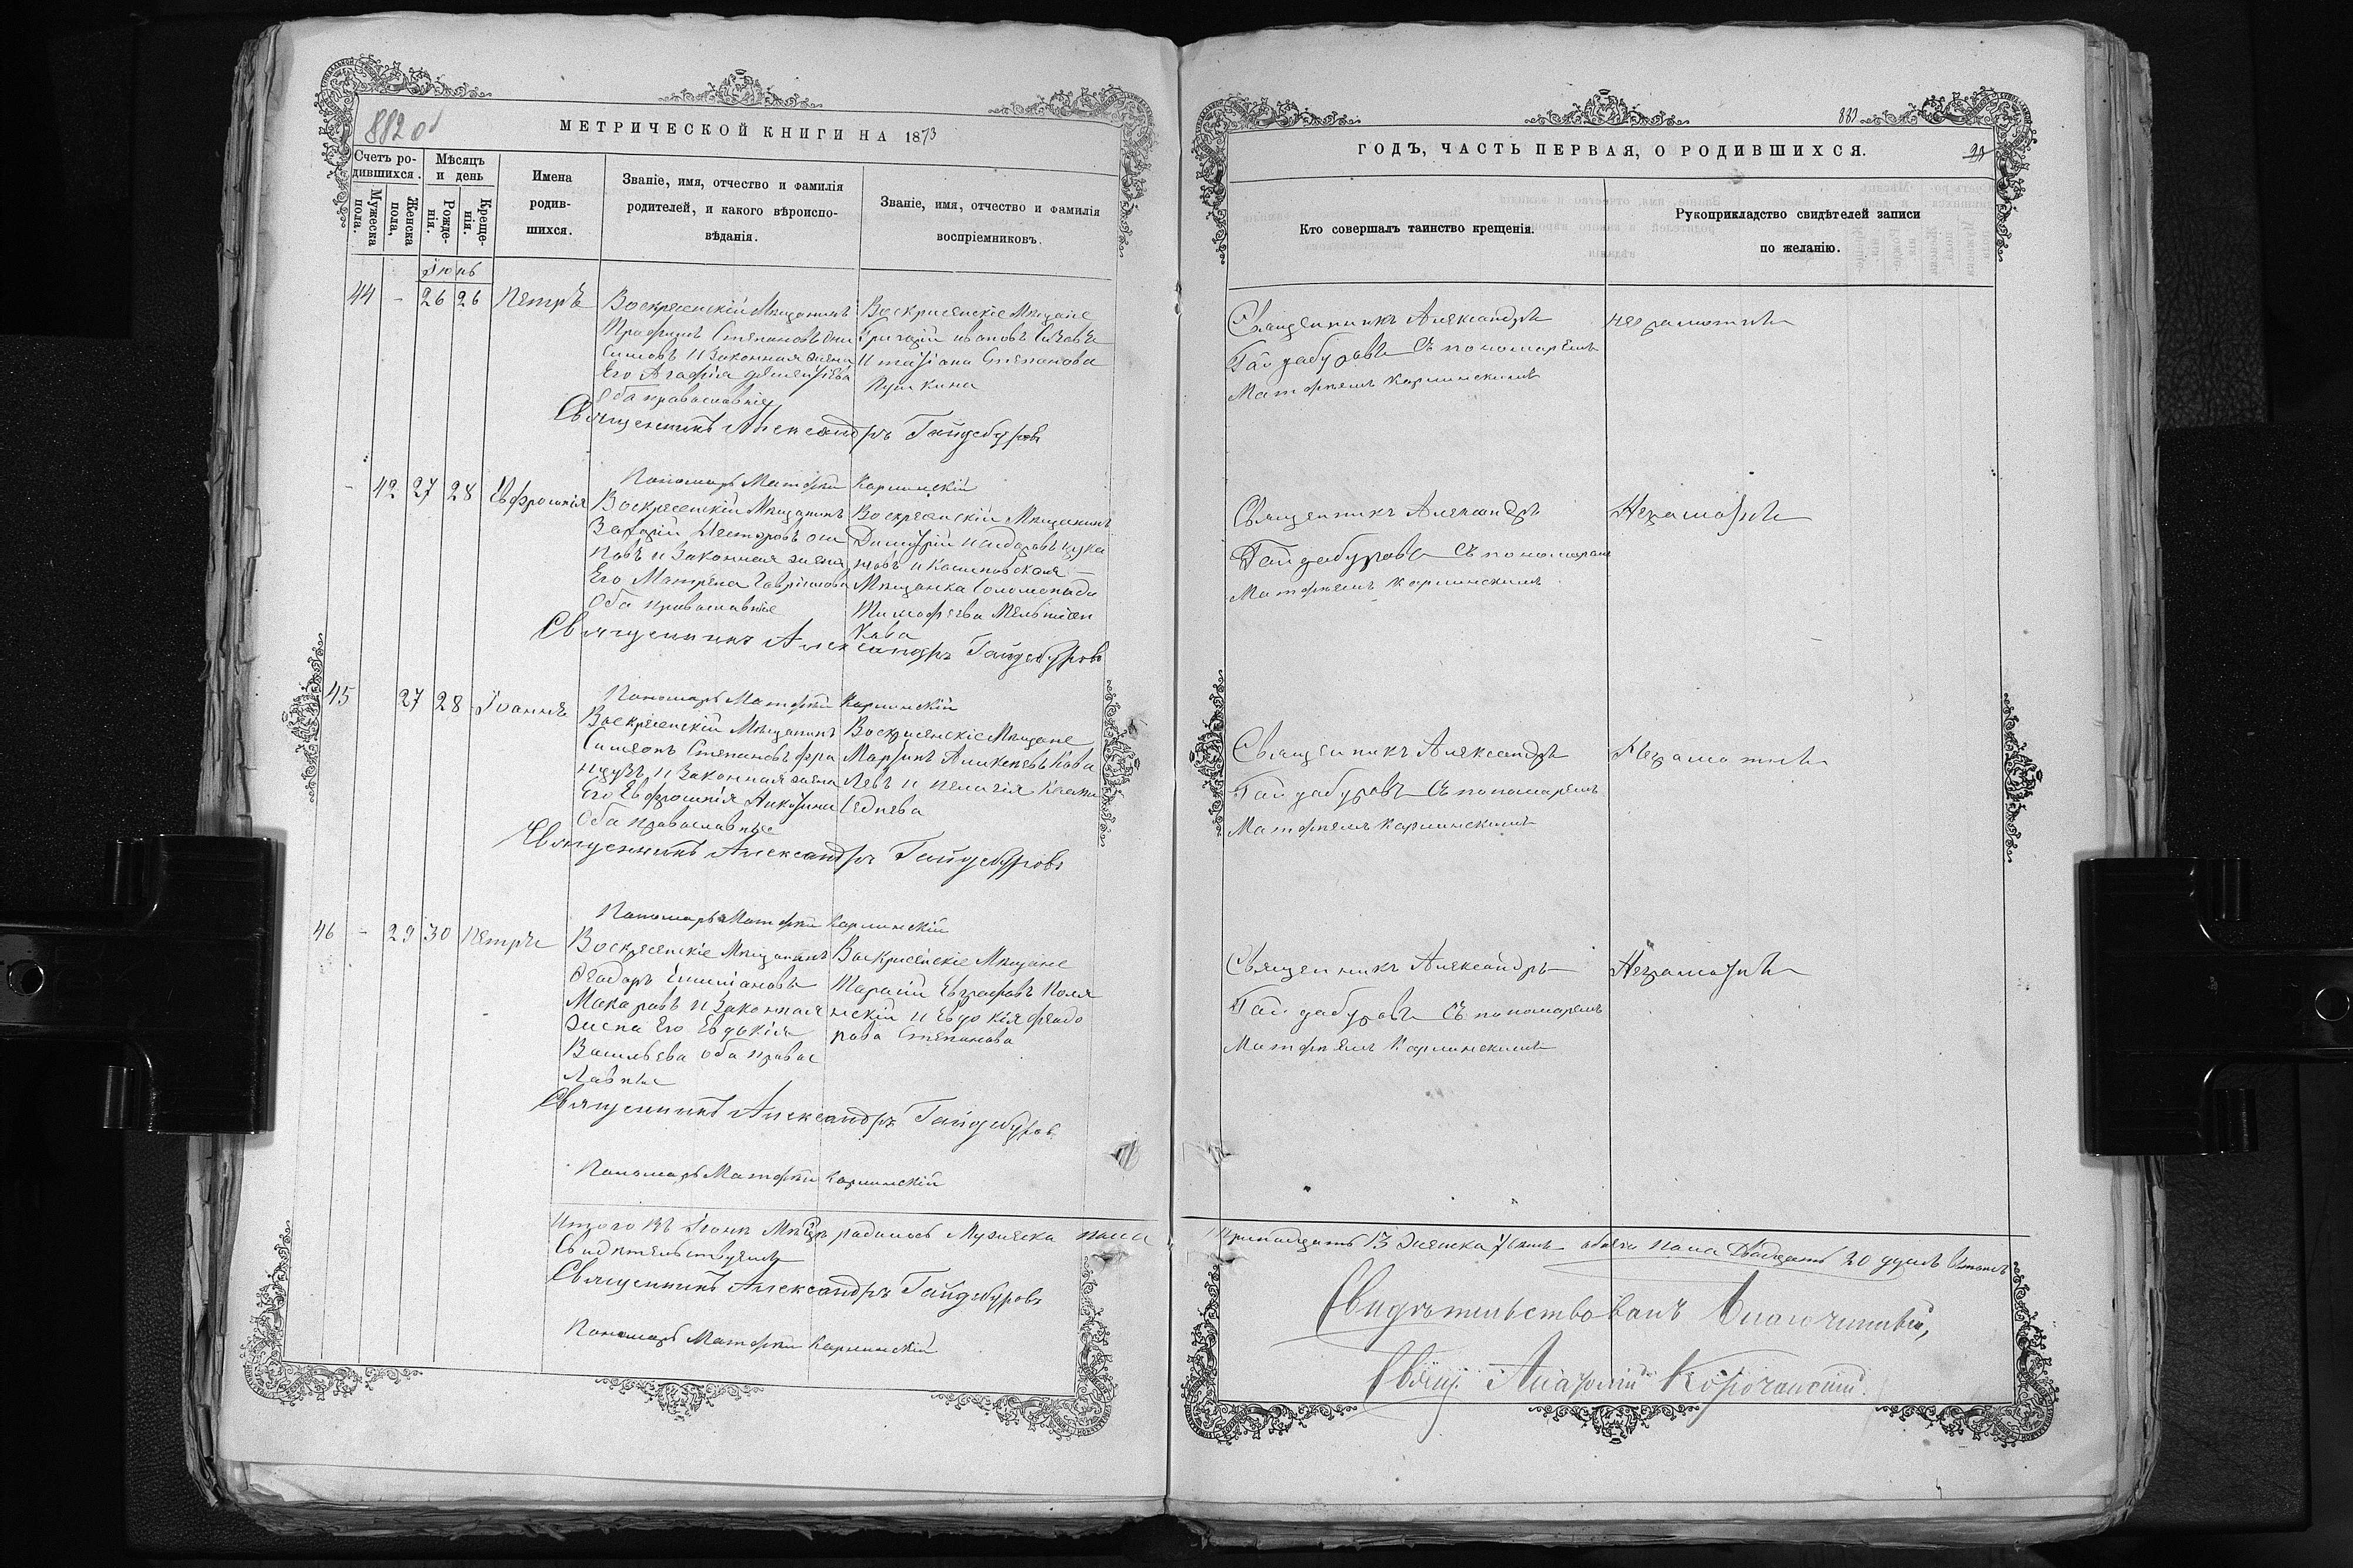 882 об
МЕТРИЧЕСКОЙ КНИГИ НА 1873
Счетъ ро-
дившихся.
Мужеска
пола.
Женска
пола,
Мѣсяцъ
и день
Рожде-
нія.
Креще-
нія.
Имена
родив-
шихся.
Званіе, имя, отчество и фамилія
родителей, и какого вѣроиспо-
вѣданія.
Званіе, имя, отчество и фамилія
воспріемниковъ.
Іюнь
44 - 26 26 Петръ
Воскресенскій Мѣщанинъ
Трофимъ Степановъ
и Законная жена
Его Агафія
Оба православніе
Воскрисенскіе Мѣщане
Григорій ивановъ
и Степанова
Пушкина
Священникъ Александръ Гайдебуровъ
Пономарь Матфѣй Карлинскій
- 42 27 28 Евфросинія
Воскресенскій Мѣщанинъ
Захарій Несторовъ
повъ и Законная жена
Его Матрена Гаврилова
Оба православніе
Воскресенскій Мѣщанинъ
Димитрій
Мѣщанка Соломонида
Тимофеева
Священникъ Александръ Гайдебуровъ
Пономарь Матфѣй Карлинскій
45 27 28 Іоаннъ
Воскресенскій Мѣщанинъ
Симеонъ Степановъ фра
нцузъ и Законная жена
Его Евфросинія
Оба православные
Воскрисенскіе Мѣщане
Мартинъ Аликсѣевъ Кова
левъ и пелагія
Священникъ Александръ Гайдебуровъ
Пономарь Матфѣй Карлинскій
46 - 29 30 Петръ
Воскресенскіе Мѣщанинъ
Феодоръ
Макаровъ и Законная
жена Его Евдокія
Васильева оба право
славніе
Воскрисенскіе Мѣщане
Тарасій Евграфовъ Поля
нскій и Евдокія феадо
рова Степанова
Священникъ Александръ Гайдебуровъ
Пономарь Матфѣй Карлинскій
Итого въ Іюнѣ Мѣцѣ радилось Мужеска пола
Свидѣтельствуемъ
Священникъ Александръ Гайдебуровъ
Пономарь Матфѣй Карлинскій
883
ГОДЪ, ЧАСТЬ ПЕРВАЯ, О РОДИВШИХСЯ.
Кто совершалъ таинство крещенія.
Рукоприкладство свидѣтелей записи
по желанію.
Священникъ Александръ
Гайдабуровъ Съ пономаремъ
Матфѣемъ Карлинскимъ
неграмотны
Священникъ Александръ
Гайдабуровъ Съ пономаремъ
Матфѣемъ Карлинскимъ
Неграмотны
Священникъ Александръ
Гайдабуровъ Съ пономаремъ
Матфѣемъ Карлинскимъ
Неграмотны
Священникъ Александръ
Гайдабуровъ Съ пономаремъ
Матфѣемъ Карлинскимъ
Неграмотны
тринадцать 13 женска 7 обоего пола Двадцать 20 душъ
Свидѣтельствовалъ Благочинный,
Свящ. Анатолій